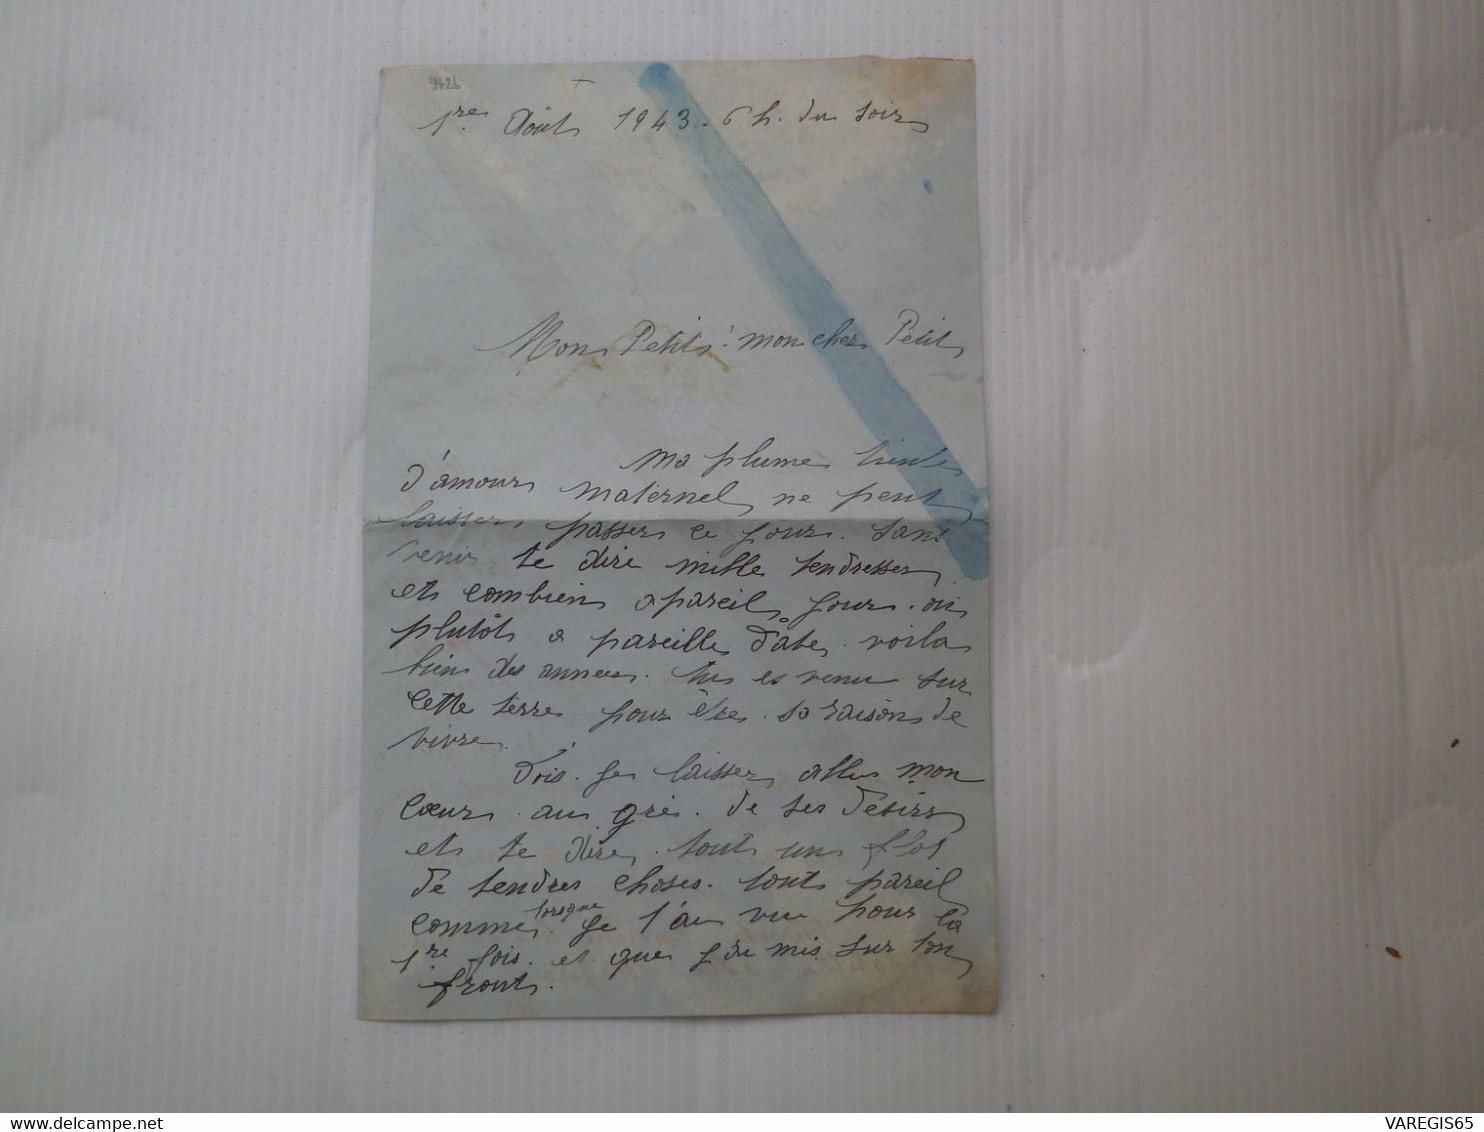 4426
+
1re Août 1943. 6 h. du soir
Mon Petit! mon cher Petit
Ma plume
d'amour maternel ne peut
laisser passer ce jour. sans
venir te dire mille tendresses
et combien a pareil jour. ou
plutôt a pareille date. voila
bien des années. tu es venu sur
cette terre pour être. sa raison de
vivre.
Dois. je laisser aller mon
cœur. au gré. de ses désirs
et te dire. tout un flot
de tendres choses. tout pareil
comme lorsque je t'ai vu pour la
1re fois. et que j'ai mis sur ton
front.
VAREGIS65